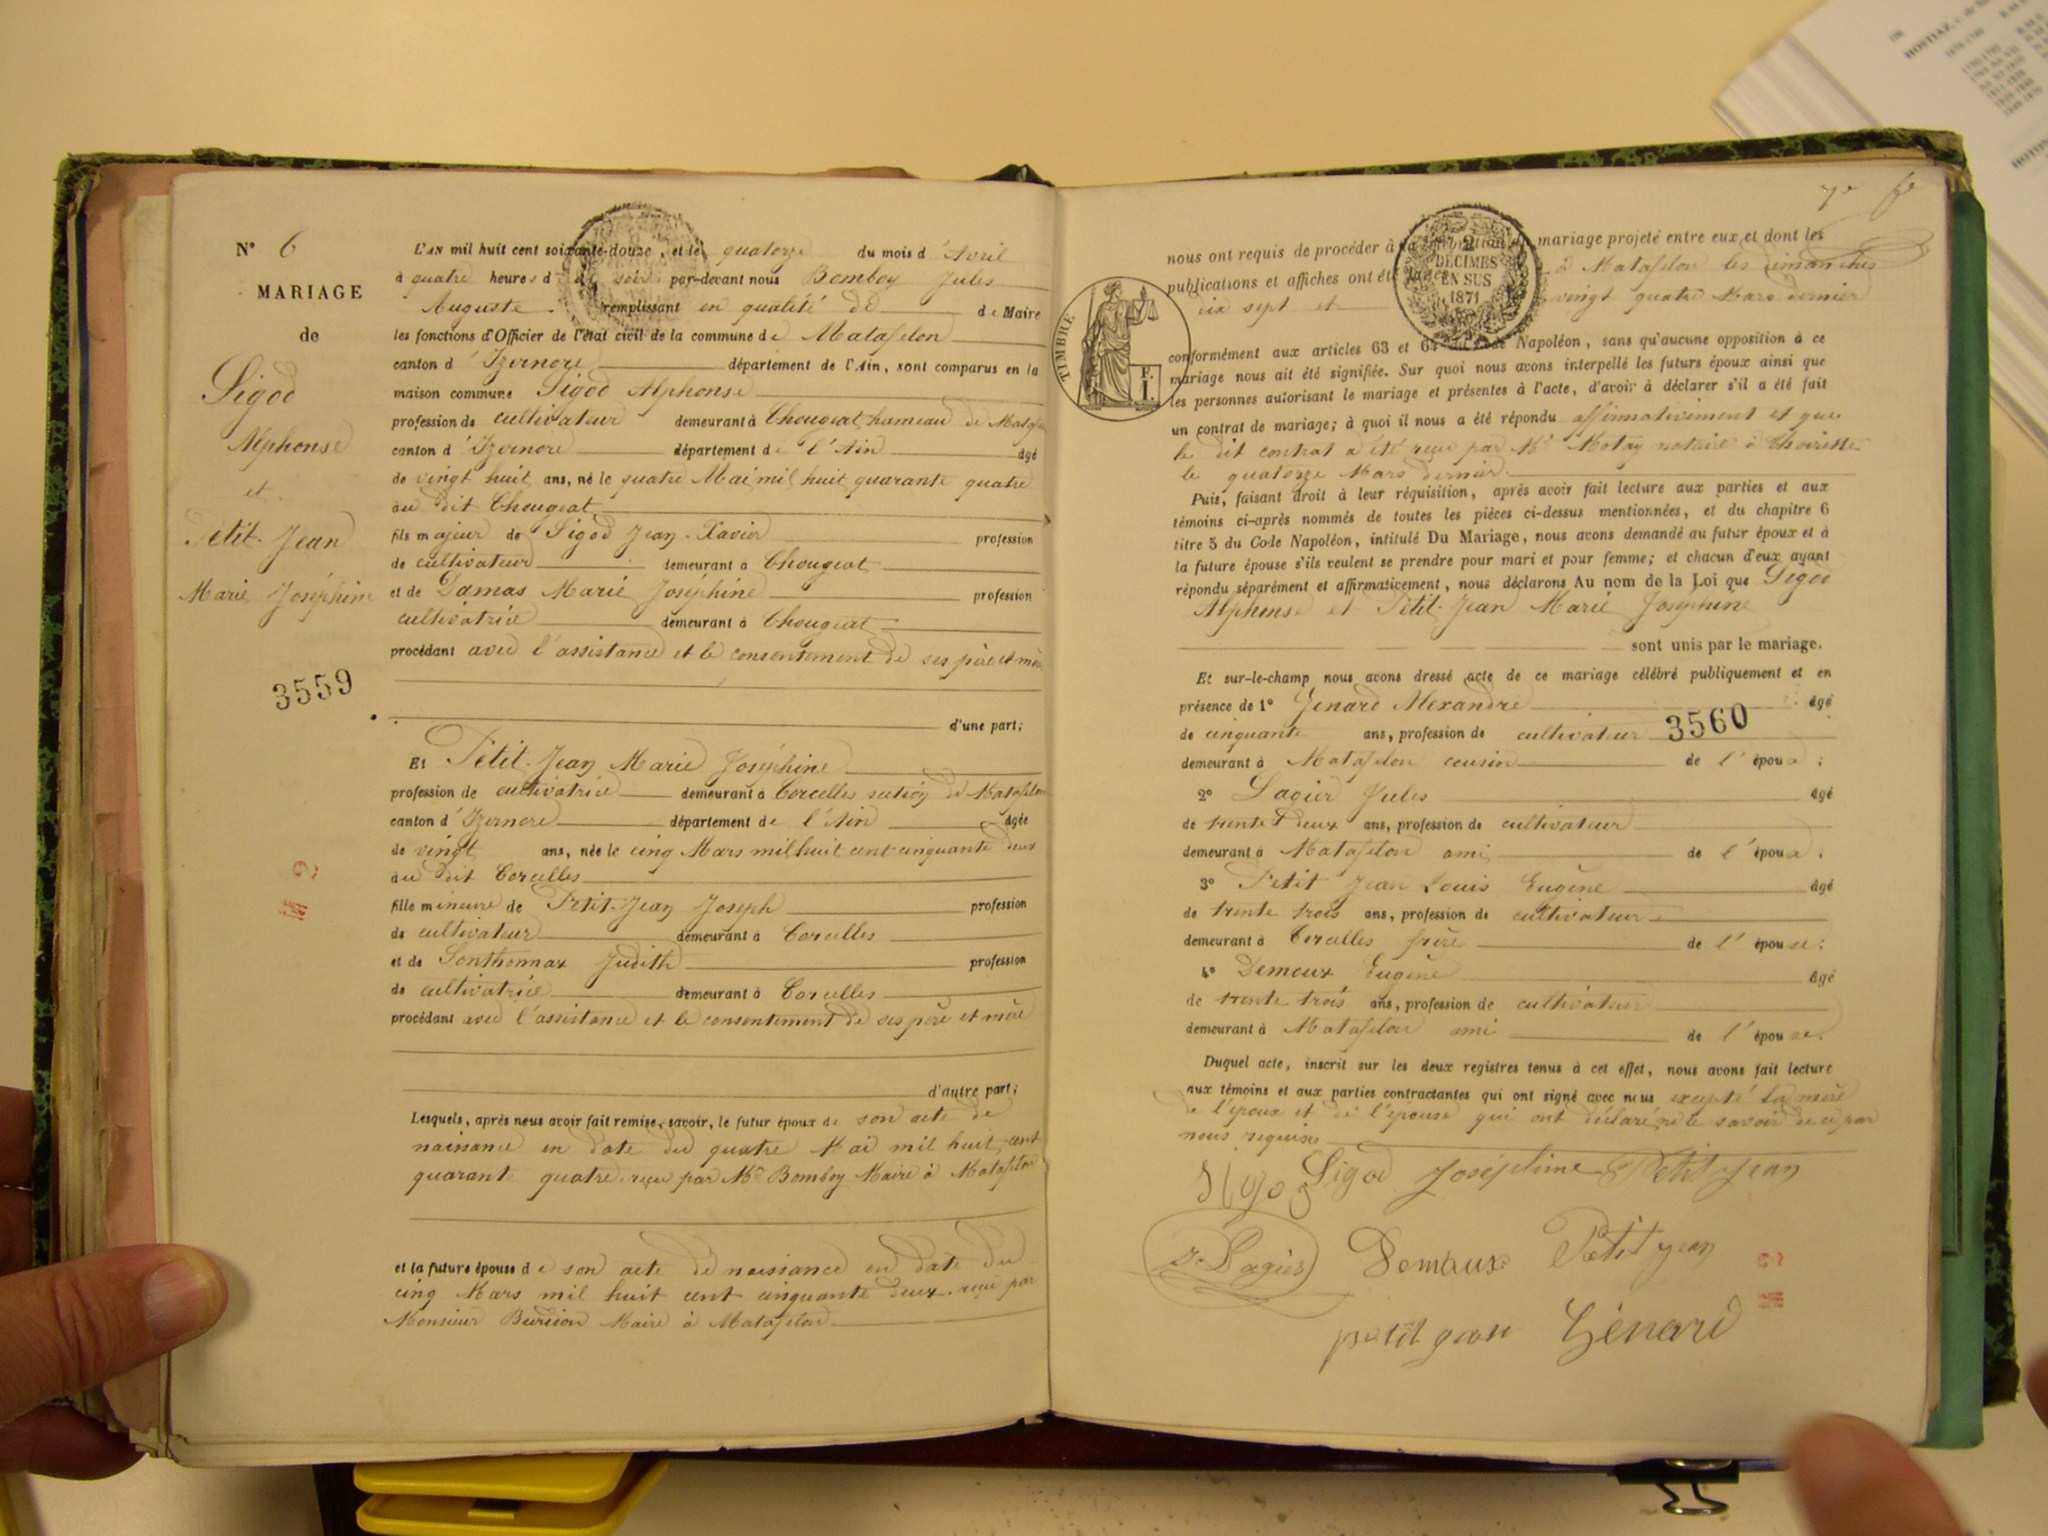 N° 6
MARIAGE
de
Sigod
Alphonse
et
Petit-Jean
Marie Joséphine
3559
L'AN mil huit cent soixante-douze, et le quatorze du mois d'Avril
à quatre heures d du soir par-devant nous Bomboy Jules
Auguste remplissant en qualité de de Maire
les fonctions d'Officier de l'état civil de la commune de Matafelon
canton d'Izernore département de l'Ain, sont comparus en la
maison commune Sigod Alphonse
profession de cultivateur demeurant à Chougeat hameau de Matafelon
canton d'Izernore département de l'Ain âgé
de vingt huit ans, né le quatre Mai mil huit quarante quatre
au dit Chougeat
fils majeur de Sigod Jean-Xavier profession
de cultivateur demeurant à Chougeat
et de Damas Marie Joséphine profession
cultivatrice demeurant à Chougeat
procédant avec l'assistance et le consentement de ses père et mère
d'une part;
Et Petit-Jean Marie Joséphine
profession de cultivatrice demeurant à Corcelles section de Matafelon
canton d'Izernore département de l'Ain âgée
de vingt ans, née le cinq Mars mil huit cent cinquante deux
au dit Corcelles
fille mineure de Petit-Jean Joseph profession
de cultivateur demeurant à Corcelles
et de Sonthonnax Judith profession
de cultivatrice demeurant à Corcelles
procédant avec l'assistance et le consentement de ses père et mère
d'autre part;
Lesquels, après nous avoir fait remise, savoir, le futur époux de son acte de
naissance en date du quatre Mai mil huit cent
quarante quatre reçu par Mr Bomboy Maire à Matafelon
et la future épouse de son acte de naissance en date du
cinq Mars mil huit cent cinquante deux reçu par
Monsieur Maire à Matafelon
nous ont requis de procéder à la célébration du mariage projeté entre eux et dont les
publications et affiches ont été faites à Matafelon les dimanches
dix sept et vingt quatre Mars dernier
2
DÉCIMES
EN SUS
1871
TIMBRE
F.
I.
conformément aux articles 63 et 64 du Code Napoléon, sans qu'aucune opposition à ce
mariage nous ait été signifiée. Sur quoi nous avons interpellé les futurs époux ainsi que
les personnes autorisant le mariage et présentes à l'acte, d'avoir à déclarer s'il a été fait
un contrat de mariage; à quoi il nous a été répondu affirmativement et que
le dit contrat a été reçu par Me notaire à Thoirette
le quatorze Mars dernier
Puis, faisant droit à leur réquisition, après avoir fait lecture aux parties et aux
témoins ci-après nommés de toutes les pièces ci-dessus mentionnées, et du chapitre 6
titre 5 du Code Napoléon, intitulé Du Mariage, nous avons demandé au futur époux et à
la future épouse s'ils veulent se prendre pour mari et pour femme; et chacun d'eux ayant
répondu séparément et affirmativement, nous déclarons Au nom de la Loi que Sigod
Alphonse et Petit-Jean Marie Joséphine
sont unis par le mariage.
Et sur-le-champ nous avons dressé acte de ce mariage célébré publiquement et en
présence de 1° Génard Alexandre âgé
de cinquante ans, profession de cultivateur
3560
demeurant à Matafelon cousin de l'époux;
2° Lagier Jules âgé
de trente deux ans, profession de cultivateur
demeurant à Matafelon ami de l'époux;
3° Petit Jean Louis Eugène âgé
de trente trois ans, profession de cultivateur
demeurant à Corcelles frère de l'épouse;
4° Demoux Eugène âgé
de trente trois ans, profession de cultivateur
demeurant à Matafelon ami de l'épouse.
Duquel acte, inscrit sur les deux registres tenus à cet effet, nous avons fait lecture
aux témoins et aux parties contractantes qui ont signé avec nous excepté la mère
de l'époux et de l'épouse qui ont déclaré ne le savoir de ce par
nous requises
Sigod Sigod Joséphine Petit Jean
J. Lagier Demoux Petit Jean
petit jean Génard